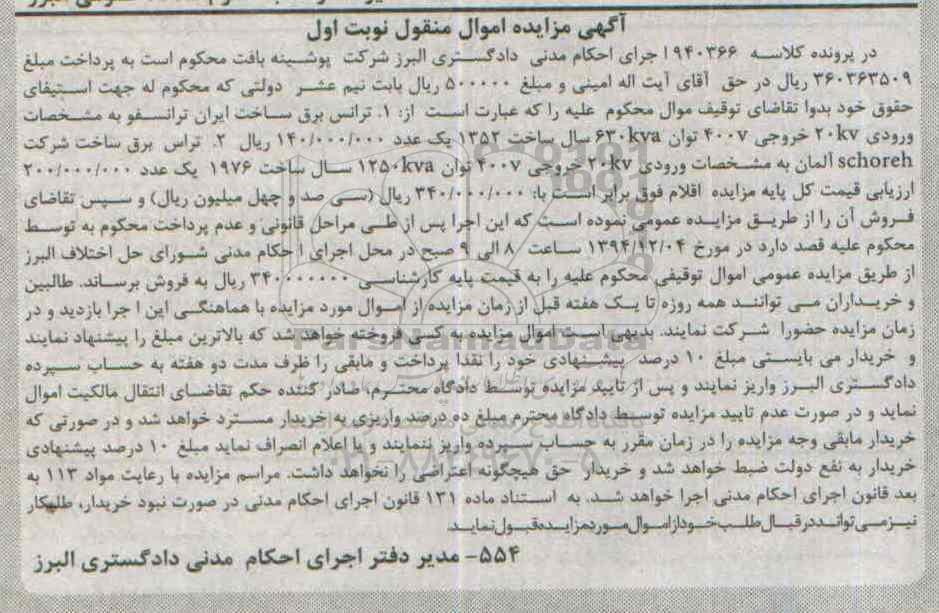 آگهی مزایده اموال منقول نوبت اول
در پرونده کلاسه ۹۴۰۳۶۶ ا جرای احکام مدنی دادگستری البرز شرکت پوشینه بافت محکوم است به پرداخت مبلغ
۳۶۰۳۶۳۵۰۹ ریال در حق آقای آیت اله امینی و مبلغ ۵۰۰۰۰۰ ریال بابت نیم عشر دولتی که محکوم له جهت استیفای
حقوق خود بدوا تقاضای توقیف موال محکوم علیه را که عبارت است از: ۱. ترانس برق ساخت ایران ترانسفو به مشخصات
ورودی ۲۰kv خروجی ۴۰۰v توان ۶۳۰kva سال ساخت ۱۳۵۲ یک عدد ۱۴۰/۰۰۰/۰۰۰ ریال ۲. تراس برق ساخت شرکت
schoreh آلمان به مشخصات ورودی ۲۰kv خروجی ۴۰۰v توان ۱۲۵۰kva سال ساخت ۱۹۷۶ یک عدد ۲۰۰/۰۰۰/۰۰۰
ارزیابی قیمت کل پایه مزایده اقلام فوق برابر است با: ۳۴۰/۰۰۰/۰۰۰ ریال (سی صد و چهل میلیون ریال) و سپس تقاضای
فروش آن را از طریق مزایده عمومی نموده است که این اجرا پس از طی مراحل قانونی و عدم پرداخت محکوم به توسط
محکوم علیه قصد دارد در مورخ ۱۳۹۴/۱۲/۰۴ ساعت ۸ الی ۹ صبح در محل اجرای ا حکام مدنی شورای حل اختلاف البرز
از طریق مزایده عمومی اموال توقیفی محکوم علیه را به قیمت پایه کارشناسی ۳۴۰۰۰۰۰۰۰ ریال به فروش برساند. طالبین
و خریداران می توانند همه روزه تا یک هفته قبل از زمان مزایده از اموال مورد مزایده با هماهنگی این ا جرا بازدید و در
زمان مزایده حضورا شرکت نمایند. بدیهی است اموال مزایده به کسی فروخته خواهد شد که بالاترین مبلغ را پیشنهاد نمایند
و خریدار می بایستی مبلغ ۱۰ درصد پیشنهادی خود را نقدا پرداخت و مابقی را ظرف مدت دو هفته به حساب سپرده
دادگستری البرز واریز نمایند و پس از تایید مزایده توسط دادگاه محترم، صادر کننده حکم تقاضای انتقال مالکیت اموال
نماید و در صورت عدم تایید مزایده توسط دادگاه محترم مبلغ ده درصد واریزی به خریدار مسترد خواهد شد و در صورتی که
خریدار مابقی وجه مزایده را در زمان مقرر به حساب سپرده واریز ننمایند و یا اعلام انصراف نماید مبلغ ۱۰ درصد پیشنهادی
خریدار به نفع دولت ضبط خواهد شد و خریدار حق هیچگونه اعتراضی را نخواهد داشت. مراسم مزایده با رعایت مواد ۱۱۳ به
بعد قانون اجرای احکام مدنی اجرا خواهد شد. به استناد ماده ۱۳۱ قانون اجرای احکام مدنی در صورت نبود خریدار، طلبکار
نیز می تواند در قبال طلب خود از اموال مورد مزایده قبول نماید.
۵۵۴- مدیر دفتر اجرای احکام مدنی دادگستری البرز